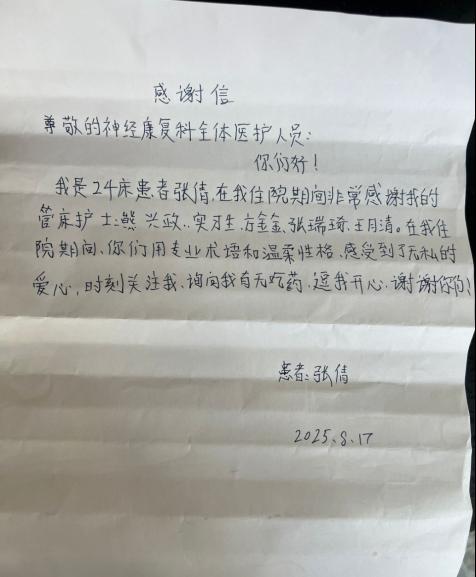 感谢信
尊敬的神经康复科全体医护人员:
你们好!
我是24床患者张倩,在我住院期间非常感谢我的
管床护士:熊兴政、实习生:方金金、张瑞琦、王月清。在我住
院期间、你们用专业术语和温柔性格、感受到了无私的
爱心,时刻关注我、询问我有无吃药、逗我开心、谢谢你们!
患者:张倩
2025.8.17